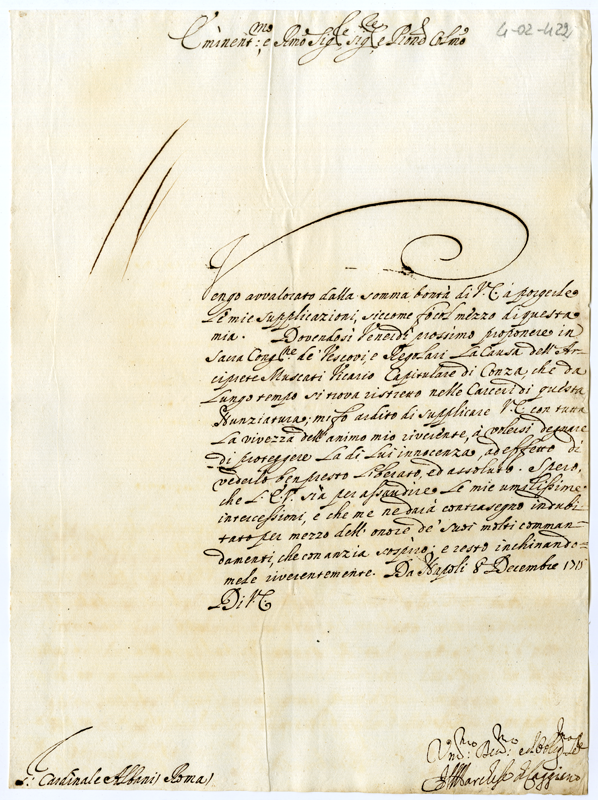 Eminent:mo e Rmo Sigre Sigre e Pron Colmo
4-02-422
Vengo avvalorato dalla somma bontà di V.E. à porgerle
le mie supplicazioni, siccome fò col mezzo di questa
mia. Dovendosi Venerdì prossimo proponere in
Sacra Congne de' Vescovi, e Regolari La Causa dell'Ar-
ciprete Muscati Vicario Capitulare di Conza, che da
Lungo tempo si trova ristretto nelle Carceri di questa
Nunziatura; mi fo ardito di supplicare V.E. con tutta
La vivezza dell'animo mio riverente, à volersi degnare
di proteggere La di Lui innocenza, ad effetto di
vederlo ben presto Liberato, ed assoluto. Spero,
che L'E.V. sia per assaudire Le mie umilissime
intercessioni, e che me ne darà contrasegno indubi-
tato per mezzo dell'onore de' suoi molti comman-
damenti, che con anzia sospiro; e resto inchinando-
mele riverentemente. Da Napoli 8 Decembre 1715
Di V.E.
S: Cardinale Albani, Roma
Um:mo Dev:mo Oblig:mo
Il Marchese